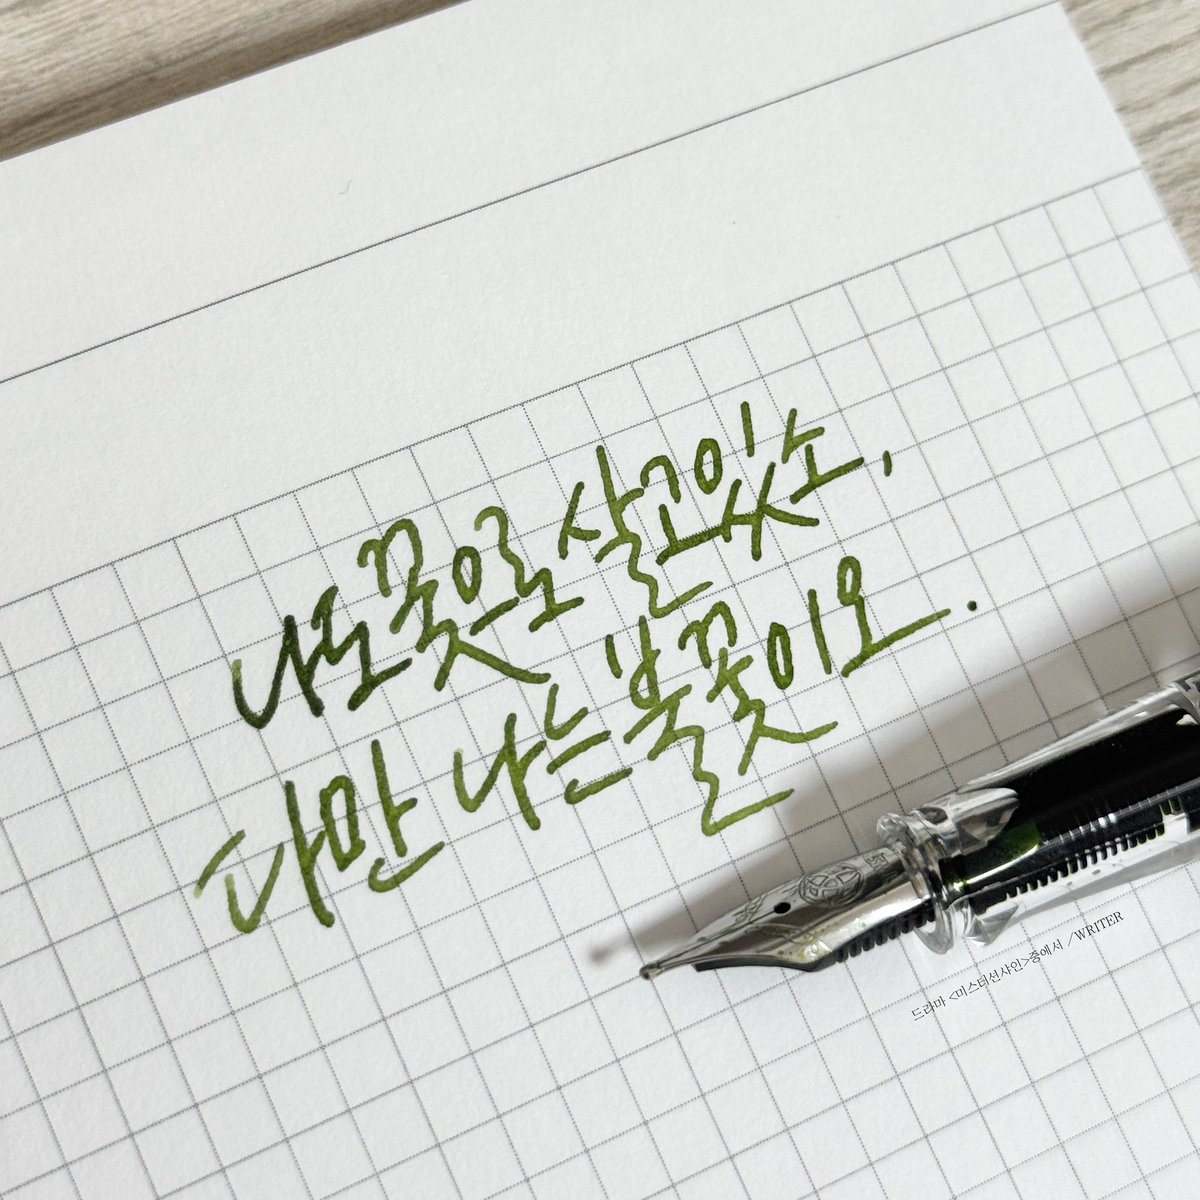 나도 꽃으로 살고 있소,
다만 나는 불꽃이오.
드라마 <미스터션샤인>중에서 /WRITER